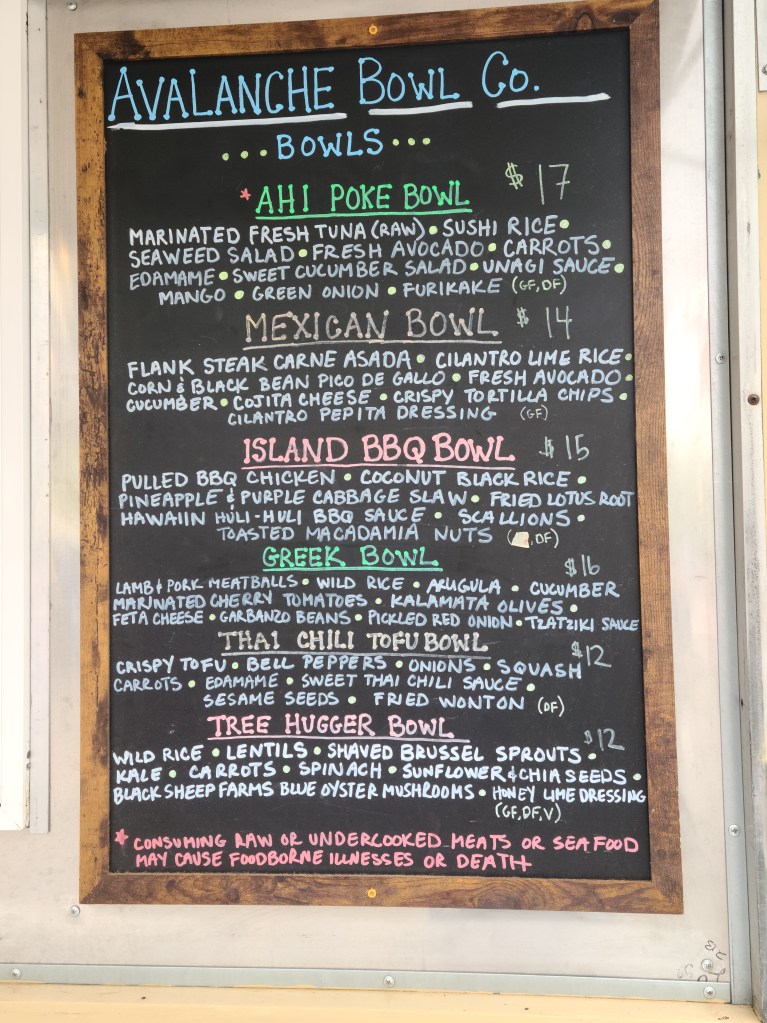 AVALANCHE BOWL CO.
...BOWLS...
*AHI POKE BOWL $17
MARINATED FRESH TUNA (RAW) • SUSHI RICE •
SEAWEED SALAD • FRESH AVOCADO • CARROTS •
EDAMAME • SWEET CUCUMBER SALAD • UNAGI SAUCE •
MANGO • GREEN ONION • FURIKAKE (GF, DF)
MEXICAN BOWL $14
FLANK STEAK CARNE ASADA • CILANTRO LIME RICE •
CORN & BLACK BEAN PICO DE GALLO • FRESH AVOCADO •
CUCUMBER • COJITA CHEESE • CRISPY TORTILLA CHIPS •
CILANTRO PEPITA DRESSING (GF)
ISLAND BBQ BOWL $15
PULLED BBQ CHICKEN • COCONUT BLACK RICE •
PINEAPPLE & PURPLE CABBAGE SLAW • FRIED LOTUS ROOT
HAWAIIN HULI-HULI BBQ SAUCE • SCALLIONS •
TOASTED MACADAMIA NUTS ( , DF)
GREEK BOWL $16
LAMB & PORK MEATBALLS • WILD RICE • ARUGULA • CUCUMBER
MARINATED CHERRY TOMATOES • KALAMATA OLIVES •
FETA CHEESE • GARBANZO BEANS • PICKLED RED ONION • TZATZIKI SAUCE
THAI CHILI TOFU BOWL $12
CRISPY TOFU • BELL PEPPERS • ONIONS • SQUASH
CARROTS • EDAMAME • SWEET THAI CHILI SAUCE •
SESAME SEEDS • FRIED WONTON (DF)
TREE HUGGER BOWL $12
WILD RICE • LENTILS • SHAVED BRUSSEL SPROUTS •
KALE • CARROTS • SPINACH • SUNFLOWER & CHIA SEEDS •
BLACK SHEEP FARMS BLUE OYSTER MUSHROOMS • HONEY LIME DRESSING
(GF, DF, V)
* CONSUMING RAW OR UNDERCOOKED MEATS OR SEAFOOD
MAY CAUSE FOODBORNE ILLNESSES OR DEATH